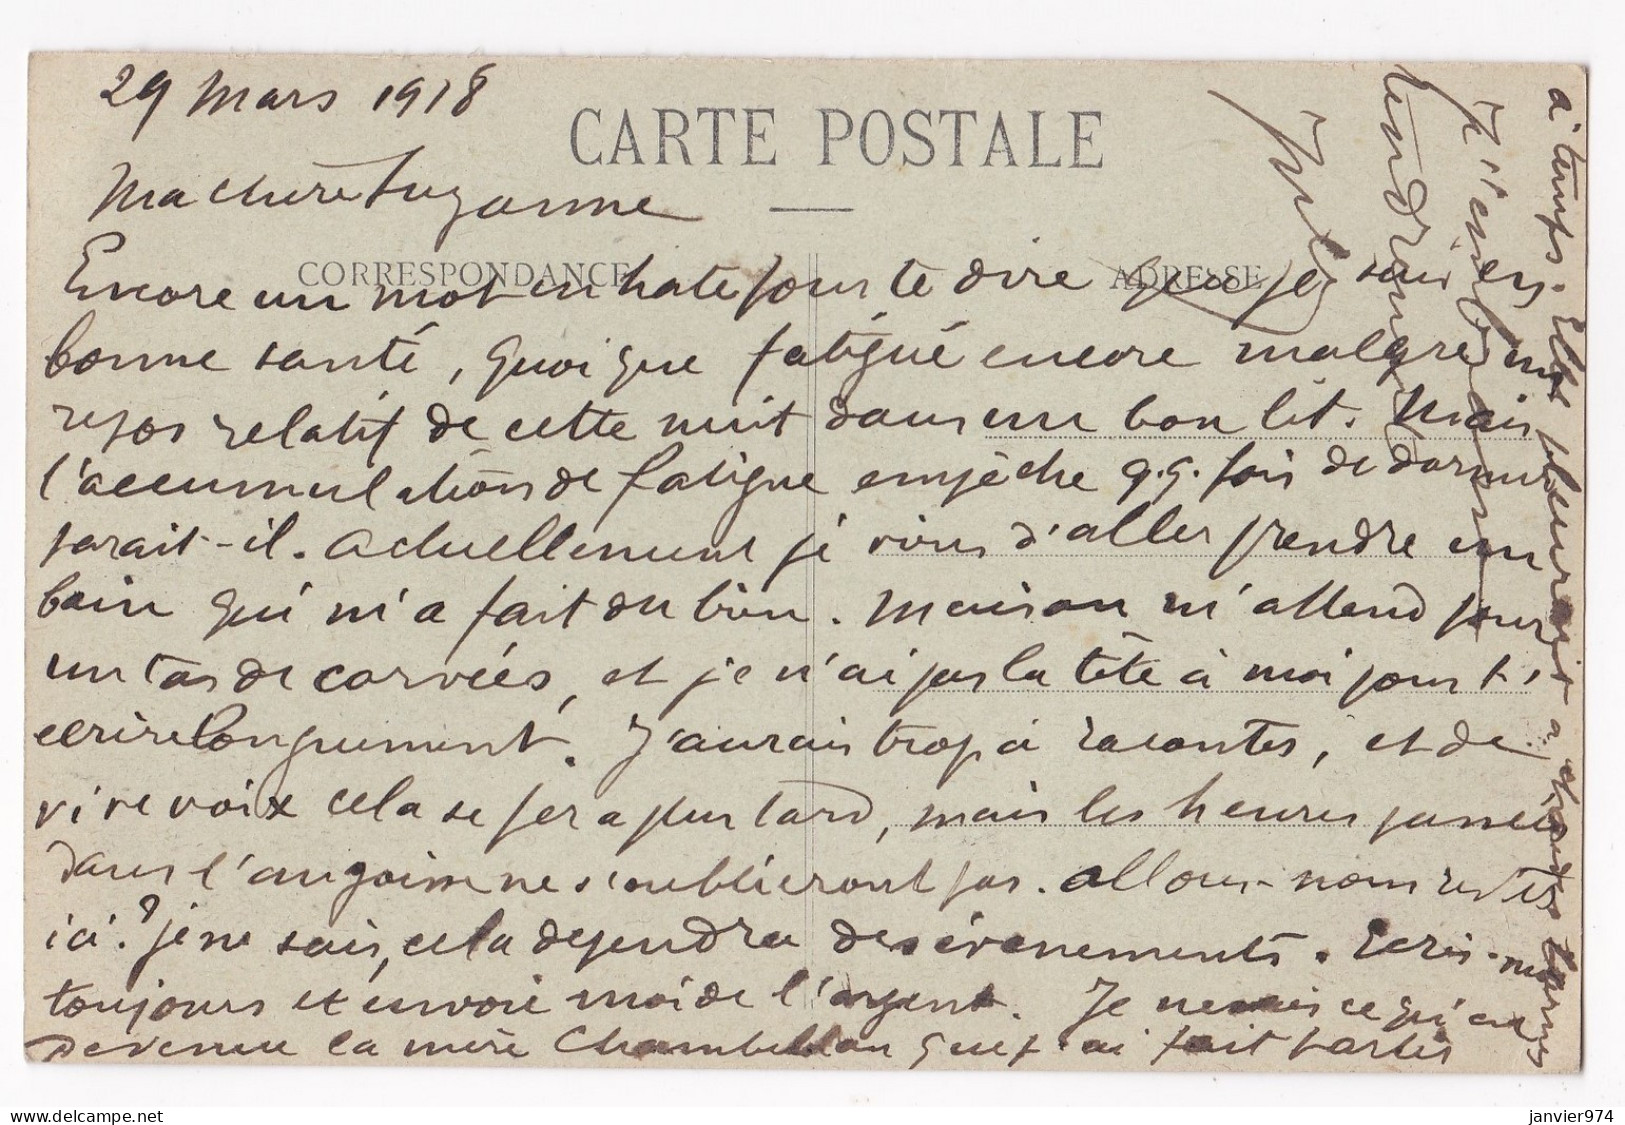 29 Mars 1918
CARTE POSTALE
Ma chère Suzanne
CORRESPONDANCE
ADRESSE
Encore un mot en hate pour te dire que je suis en
bonne santé, quoique fatigué encore malgré un
repos relatif de cette nuit dans un bon lit. Mais
l'accumulation de fatigue empêche q.q. fois de dormir
parait-il. Actuellement je viens d'aller prendre un
bain qui m'a fait du bien. Maison m'attend pour
un tas de corvées, et je n'ai pas la tête à moi pour t'
ecrire longuement. J'aurais trop à raconter, et de
vive voix cela se fera plus tard, mais les heures passées
dans l'angoisse ne s'oublieront pas. Allons-nous rester
ici? je ne sais, cela dependra des évenements. Ecris-moi
toujours et envoie moi de l'argent. Je ne sais ce qu'est
devenue la mère Chambellan que j'ai fait partir
à temps. Elle pleurait à chaudes larmes
Je t'embrasse
tendrement
Jules
janvier974